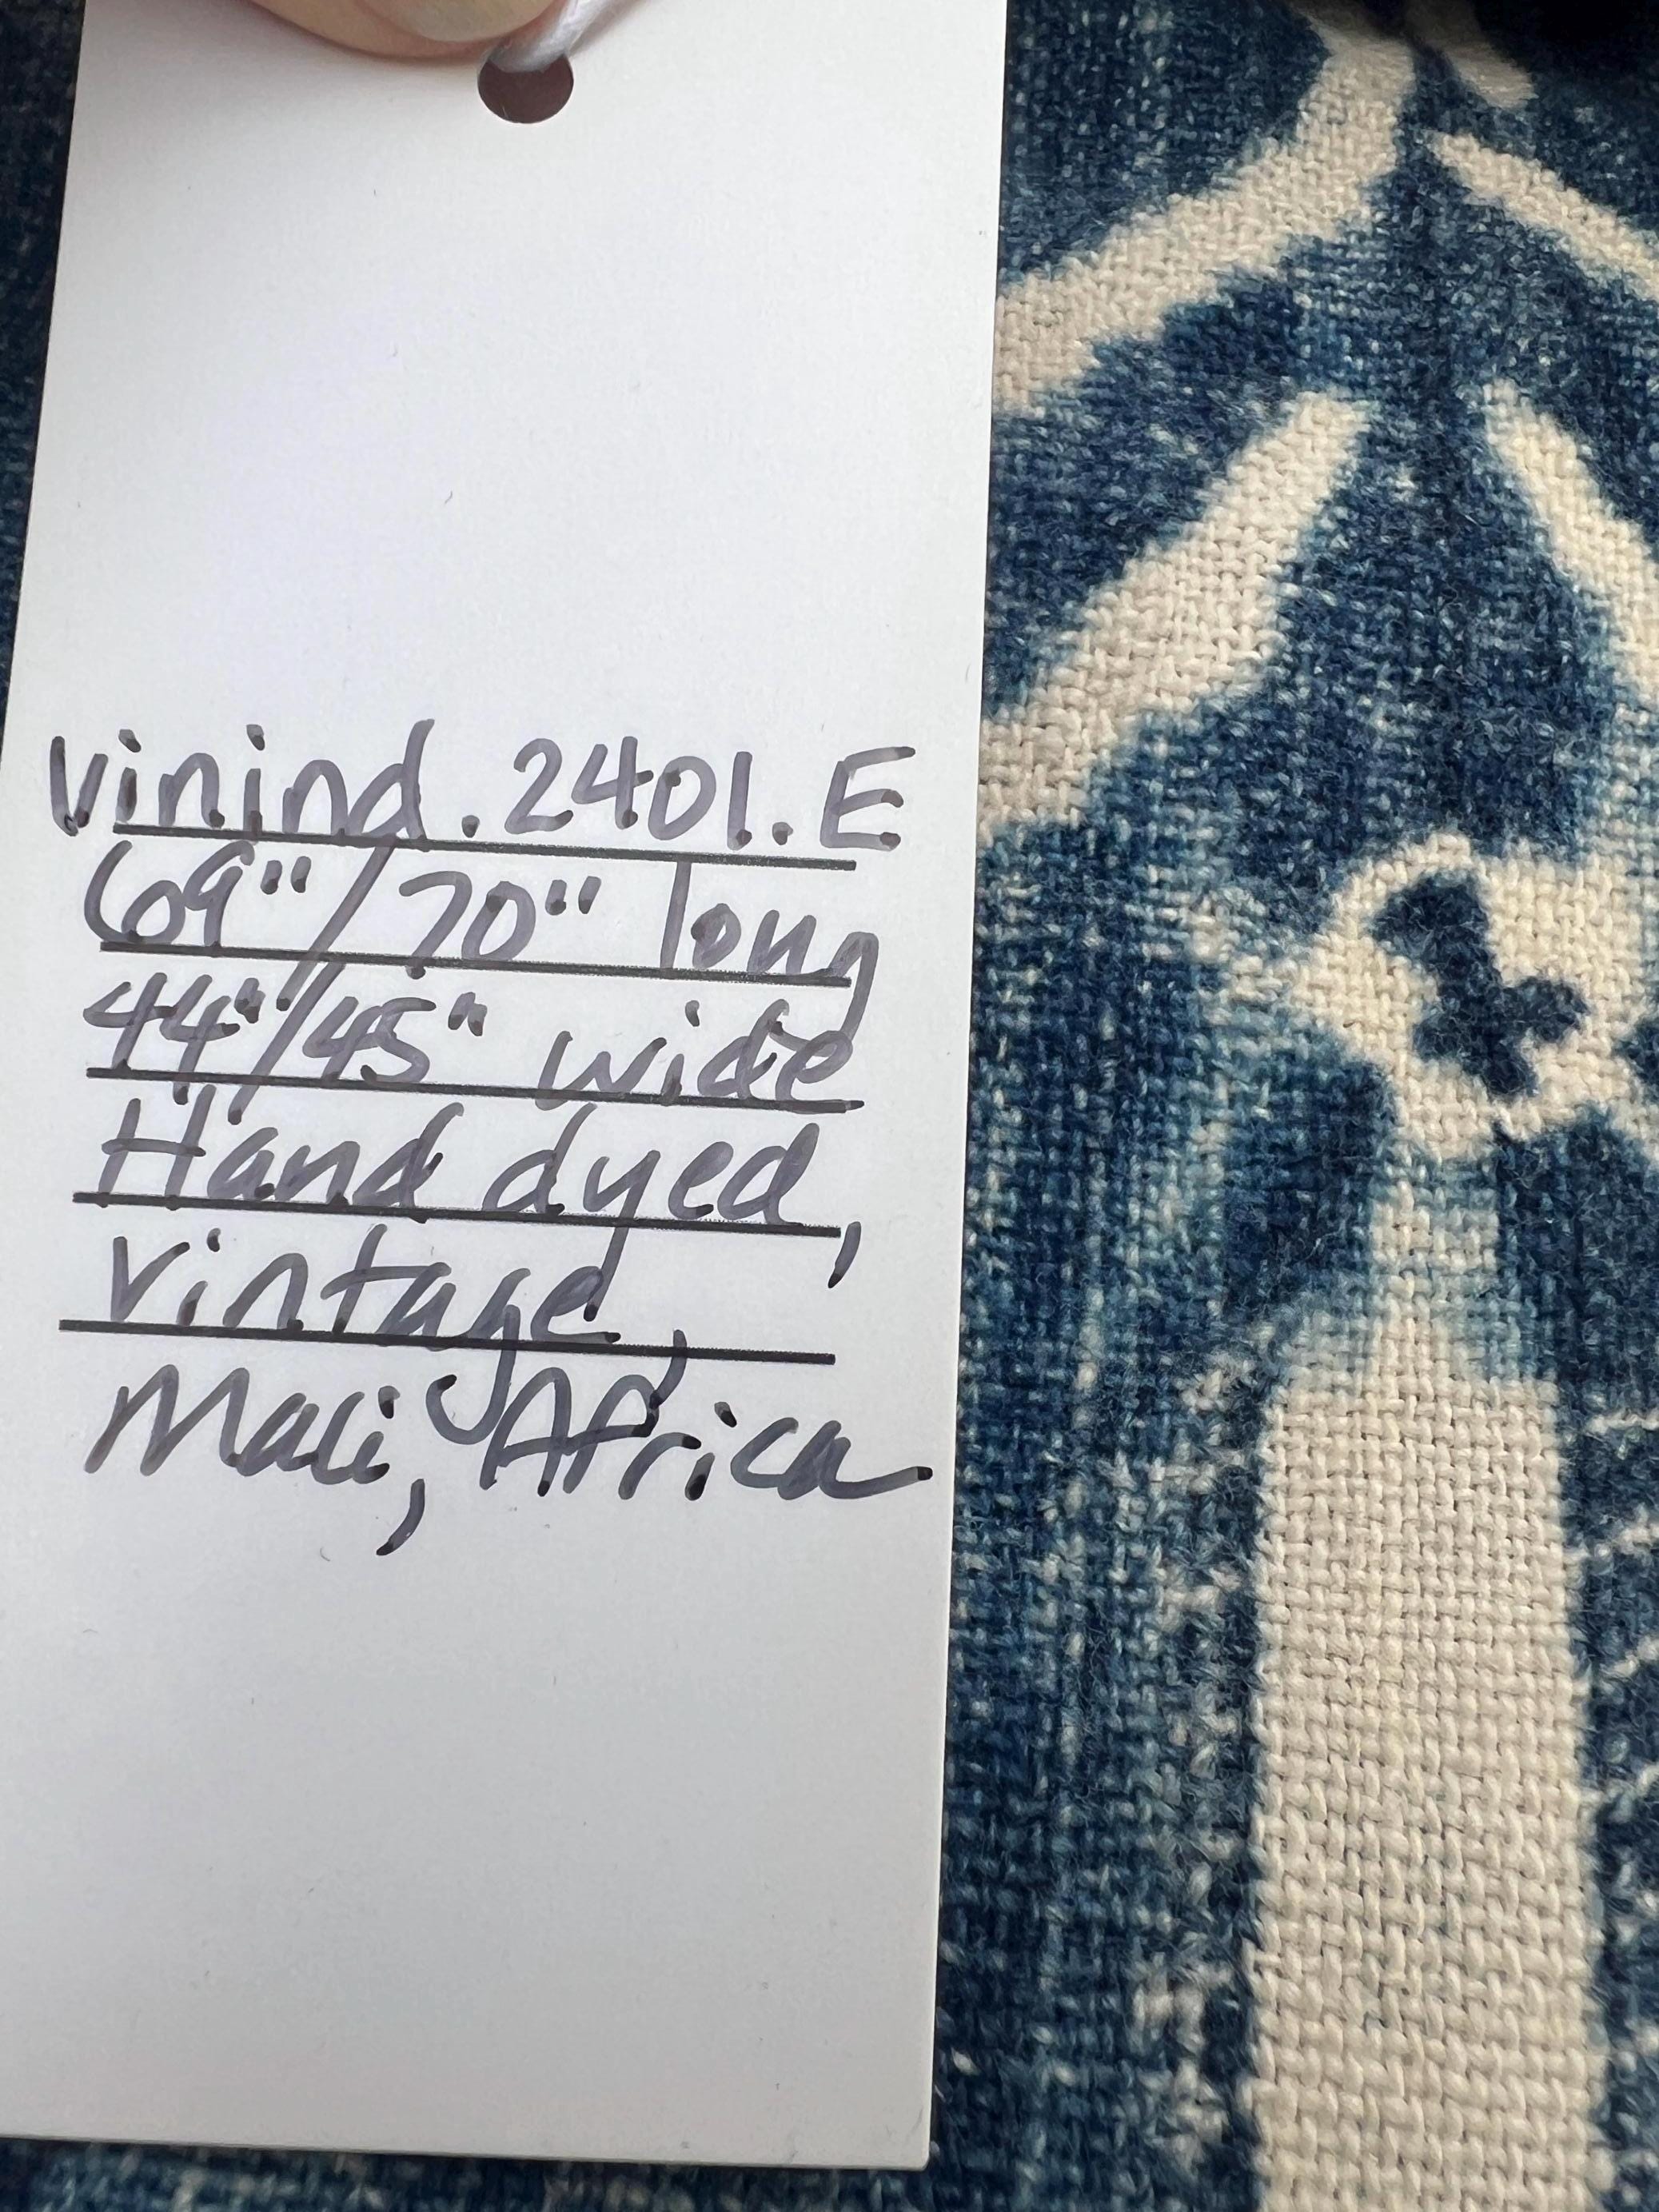 Vinind.2401.E
69"/70" long
44"/45" wide
Hand dyed,
Vintage,
Mali, Africa